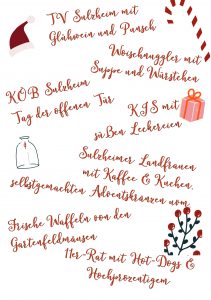 TV Sulzheim mit
Glühwein und Punsch
Woischnuggler mit
Suppe und Würstchen
KÖB Sulzheim
Tag der offenen Tür
KJS mit
süßen Leckereien
Sulzheimer Landfrauen
mit Kaffee & Kuchen,
selbstgemachten Adventskränzen uvm
Frische Waffeln von den
Gartenfeldmäusen
11er-Rat mit Hot-Dogs &
Hochprozentigem